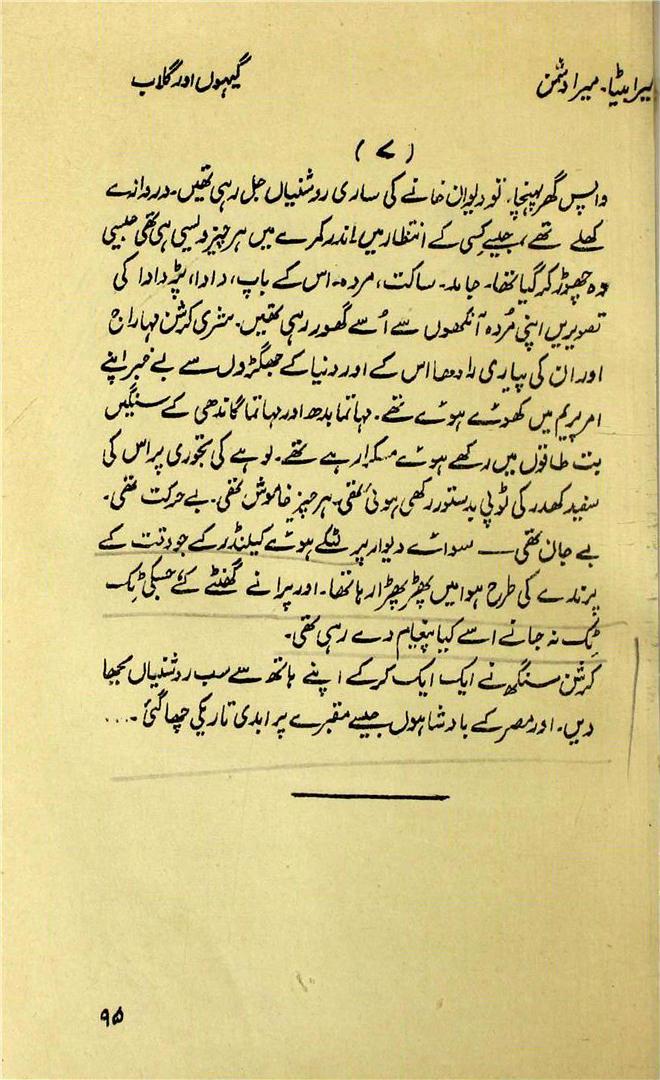 میرا بیٹا۔ میرا دشمن
گیہوں اور گلاب
(۷)
واپس گھر پہنچا۔ تو دیوان خانے کی ساری روشنیاں جل رہی تھیں۔ دروازے
کھلے تھے، جیسے کسی کے انتظار میں۔ اندر کمرے میں ہر چیز ویسی ہی تھی جیسی
وہ چھوڑ کر گیا تھا۔ جامد۔ ساکت، مردہ۔ اس کے باپ، دادا، پڑدادا کی
تصویریں اپنی مُردہ آنکھوں سے اُسے گھور رہی تھیں۔ شری کرشن مہاراج
اور ان کی پیاری رادھا اس کے اور دنیا کے جھگڑوں سے بے خبر اپنے
امر پریم میں کھوئے ہوئے تھے۔ مہاتما بدھ اور مہاتما گاندھی کے سنگیں
بت طاقوں میں رکھے ہوئے مسکرا رہے تھے۔ لوہے کی تجوری پر اس کی
سفید کھدر کی ٹوپی بدستور رکھی ہوئی تھی۔ ہر چیز خاموش تھی۔ بے حرکت تھی۔
بے جان تھی — سوائے دیوار پر لٹکے ہوئے کیلنڈر کے جو وقت کے
پرندے کی طرح ہوا میں پھڑپھڑا رہا تھا۔ اور پرانے گھنٹے کے جسکی ٹِک
ٹِک نہ جانے اسے کیا پیغام دے رہی تھی۔
کرشن سنگھ نے ایک ایک کر کے اپنے ہاتھ سے سب روشنیاں بجھا
دیں۔ اور مصر کے بادشاہوں جیسے مقبرے پر ابدی تاریکی چھا گئی۔...
۹۵